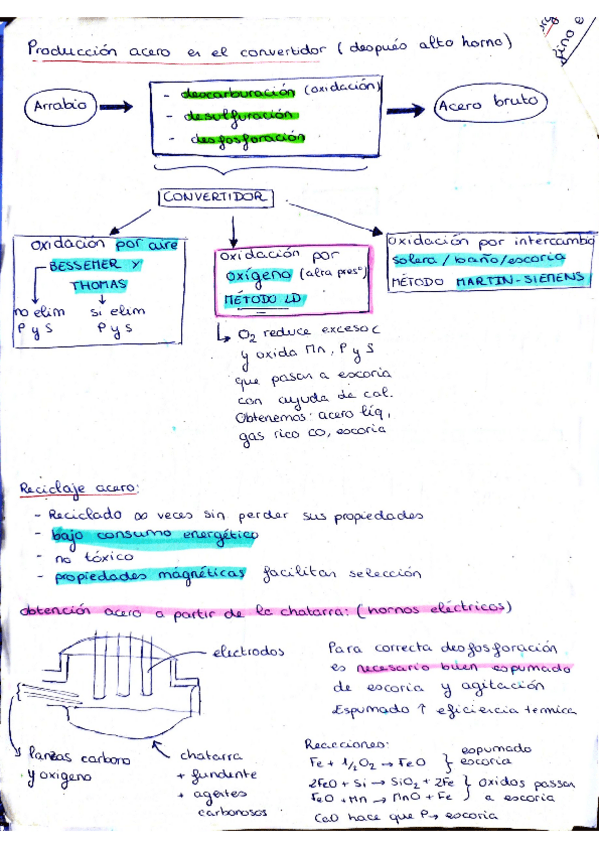 Producción acero en el convertidor (después alto horno)
Arrabio
- decarburación (oxidación)
- desulfuración
- desfosforación
Acero bruto
CONVERTIDOR
oxidación por aire
BESSEMER Y
THOMAS
no elim
P y S
si elim
P y S
oxidación por
oxígeno (alta pres°)
MÉTODO LD
O₂ reduce exceso C
y oxida Mn, P y S
que pasan a escoria
con ayuda de cal.
Obtenemos: acero líq,
gas rico CO, escoria
oxidación por intercambio
solera / baño / escoria
MÉTODO MARTIN-SIEMENS
Reciclaje acero:
- Reciclado ∞ veces sin perder sus propiedades
- bajo consumo energético
- no tóxico
- propiedades magnéticas facilitan selección
obtención acero a partir de la chatarra: (hornos eléctricos)
electrodos
lanzas carbono
y oxígeno
chatarra
+ fundente
+ agentes
carbonosos
Para correcta desfosforación
es necesario buen espumado
de escoria y agitación
Espumado ↑ eficiencia termica
Reacciones:
Fe + 1/2 O₂ → FeO } espumado
escoria
2FeO + Si → SiO₂ + 2Fe } oxidos pasan
FeO + Mn → MnO + Fe } a escoria
CaO hace que P → escoria